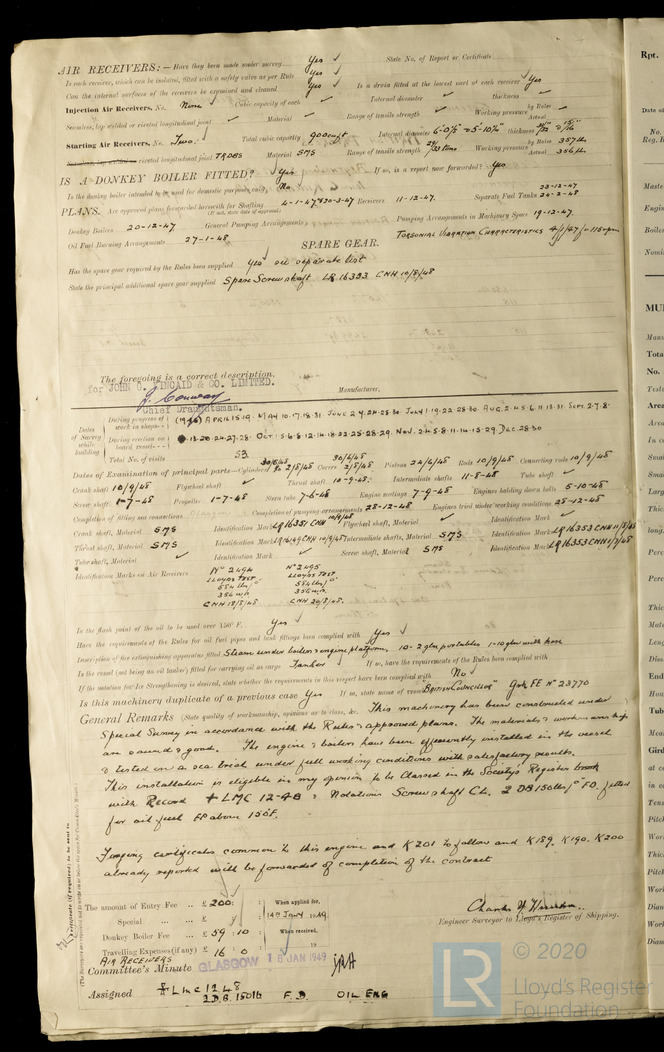 AIR RECEIVERS:— Have they been made under survey Yes ✓ State No. of Report or Certificate
Is each receiver, which can be isolated, fitted with a safety valve as per Rule Yes ✓
Can the internal surfaces of the receivers be examined and cleaned Yes ✓ Is a drain fitted at the lowest part of each receiver Yes
Injection Air Receivers, No. None Cubic capacity of each Internal diameter thickness
Seamless, lap welded or riveted longitudinal joint Material Range of tensile strength Working pressure by Rules Actual
Starting Air Receivers, No. Two. Total cubic capacity 900 cu ft Internal diameter thickness
riveted longitudinal joint TRDBS Material SMS Range of tensile strength Working pressure by Rules 357 lb Actual 356 lb
IS A DONKEY BOILER FITTED? Yes If so, is a report now forwarded? Yes
Is the donkey boiler intended to be used for domestic purposes only No
PLANS. Are approved plans forwarded herewith for Shafting 4-1-47 & 20-3-47 Receivers 11-12-47. Separate Fuel Tanks 23-12-47 24-2-48
(If not, state date of approval)
Donkey Boilers 20-12-47 General Pumping Arrangements Pumping Arrangements in Machinery Space 19-12-47.
Oil Fuel Burning Arrangements 27-1-48 TORSIONAL VIBRATION CHARACTERISTICS
SPARE GEAR.
Has the spare gear required by the Rules been supplied Yes
State the principal additional spare gear supplied Spare Screwshaft LR 16353 CNH 10/8/48
The foregoing is a correct description.
for JOHN G. KINCAID & CO. LIMITED. Manufacturer.
Chief Draughtsman.
Dates of Survey while building
During progress of work in shops - - (1948) APRIL 15.19. MAY 10.17.18.31 JUNE 2.4.24.28.30 JULY 1.19.22.28.30. AUG. 2.4.5.6.11.13.31 SEPT. 2.7.8.
During erection on board vessel - - 13.20.24.27.28 OCT. 1.5.6.8.12.14.18.22.25.28.29. NOV. 2.4.5.8.11.14.15.29. DEC. 28.30
Total No. of visits 53
Dates of Examination of principal parts—Cylinders Covers Pistons 24/6/48 Rods 10/9/48 Connecting rods 10/9/48
Crank shaft 10/9/48 Flywheel shaft ✓ Thrust shaft 10-9-48. Intermediate shafts 11-8-48 Tube shaft ✓
Screw shaft 1-7-48 Propeller 1-7-48 Stern tube 7-6-48 Engine seatings 7-9-48 Engines holding down bolts 5-10-48
Completion of fitting sea connections Completion of pumping arrangements 28-12-48 Engines tried under working conditions 28-12-48
Crank shaft, Material SMS Identification Mark LR 16351 CNH 10/9/48 Flywheel shaft, Material ✓ Identification Mark ✓
Thrust shaft, Material SMS Identification Mark Intermediate shafts, Material SMS Identification Marks
Tube shaft, Material ✓ Identification Mark ✓ Screw shaft, Material SMS Identification Mark
Identification Marks on Air Receivers No 2494 No 2495
LLOYDS TEST LLOYDS TEST
356 356
CNH CNH
Is the flash point of the oil to be used over 150° F. Yes ✓
Have the requirements of the Rules for oil fuel pipes and tank fittings been complied with Yes
Description of fire extinguishing apparatus fitted Steam under boilers & engine platforms, 10 - 2 glm portables 1-10 glm with hose
Is the vessel (not being an oil tanker) fitted for carrying oil as cargo Tanker If so, have the requirements of the Rules been complied with
If the notation for Ice Strengthening is desired, state whether the requirements in this respect have been complied with No
Is this machinery duplicate of a previous case Yes If so, state name of vessel "BRITISH COUNCILLOR" Gok FE No 23770
General Remarks (State quality of workmanship, opinions as to class, &c. This machinery has been constructed under
Special Survey in accordance with the Rules & approved plans. The materials & workmanship
are sound & good. The engine & boilers have been efficiently installed in the vessel
& tested on a sea trial under full working conditions with satisfactory results.
This installation is eligible in my opinion to be Classed in the Society's Register Book
with Record + LMC 12-48 & Notations Screwshaft CL. 2 DB 150 lbs/□" FD. fitted
for oil fuel FP above 150°F.
Forging certificates common to this engine and K201 to follow and K189. K190. K200
already reported will be forwarded of completion of the contract
Certificate (if required) to be sent to
The amount of Entry Fee .. £ 200: When applied for,
Special ... £ 14th Jany 1949
Donkey Boiler Fee ... £ 59 : 10 : When received,
Travelling Expenses (if any) £ 16 : 0 19
AIR RECEIVERS
Engineer Surveyor to Lloyd's Register of Shipping.
Committee's Minute GLASGOW 18 JAN 1949
Assigned + LMC 12 48
2 D.B. 150 lb F.D. OIL ENG
© 2020
LR
Lloyd's Register
Foundation
Rpt.